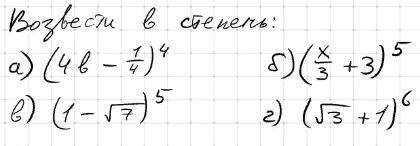 Возвести в степень:
а) (4b - 1/4)^4 б) (x/3 + 3)^5
в) (1 - √7)^5 г) (√3 + 1)^6